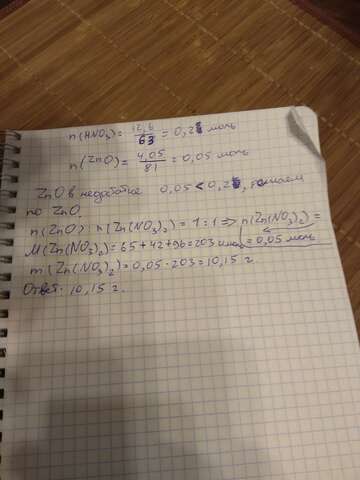 n(HNO₃) = 12,6/63 = 0,2 моль
n(ZnO) = 4,05/81 = 0,05 моль
ZnO в недостатке 0,05 < 0,2, решаем
по ZnO.
n(ZnO) : n(Zn(NO₃)₂) = 1:1 => n(Zn(NO₃)₂) =
= 0,05 моль
M(Zn(NO₃)₂) = 65+42+96=203
m(Zn(NO₃)₂)=0,05·203=10,15 г.
Ответ: 10,15 г.